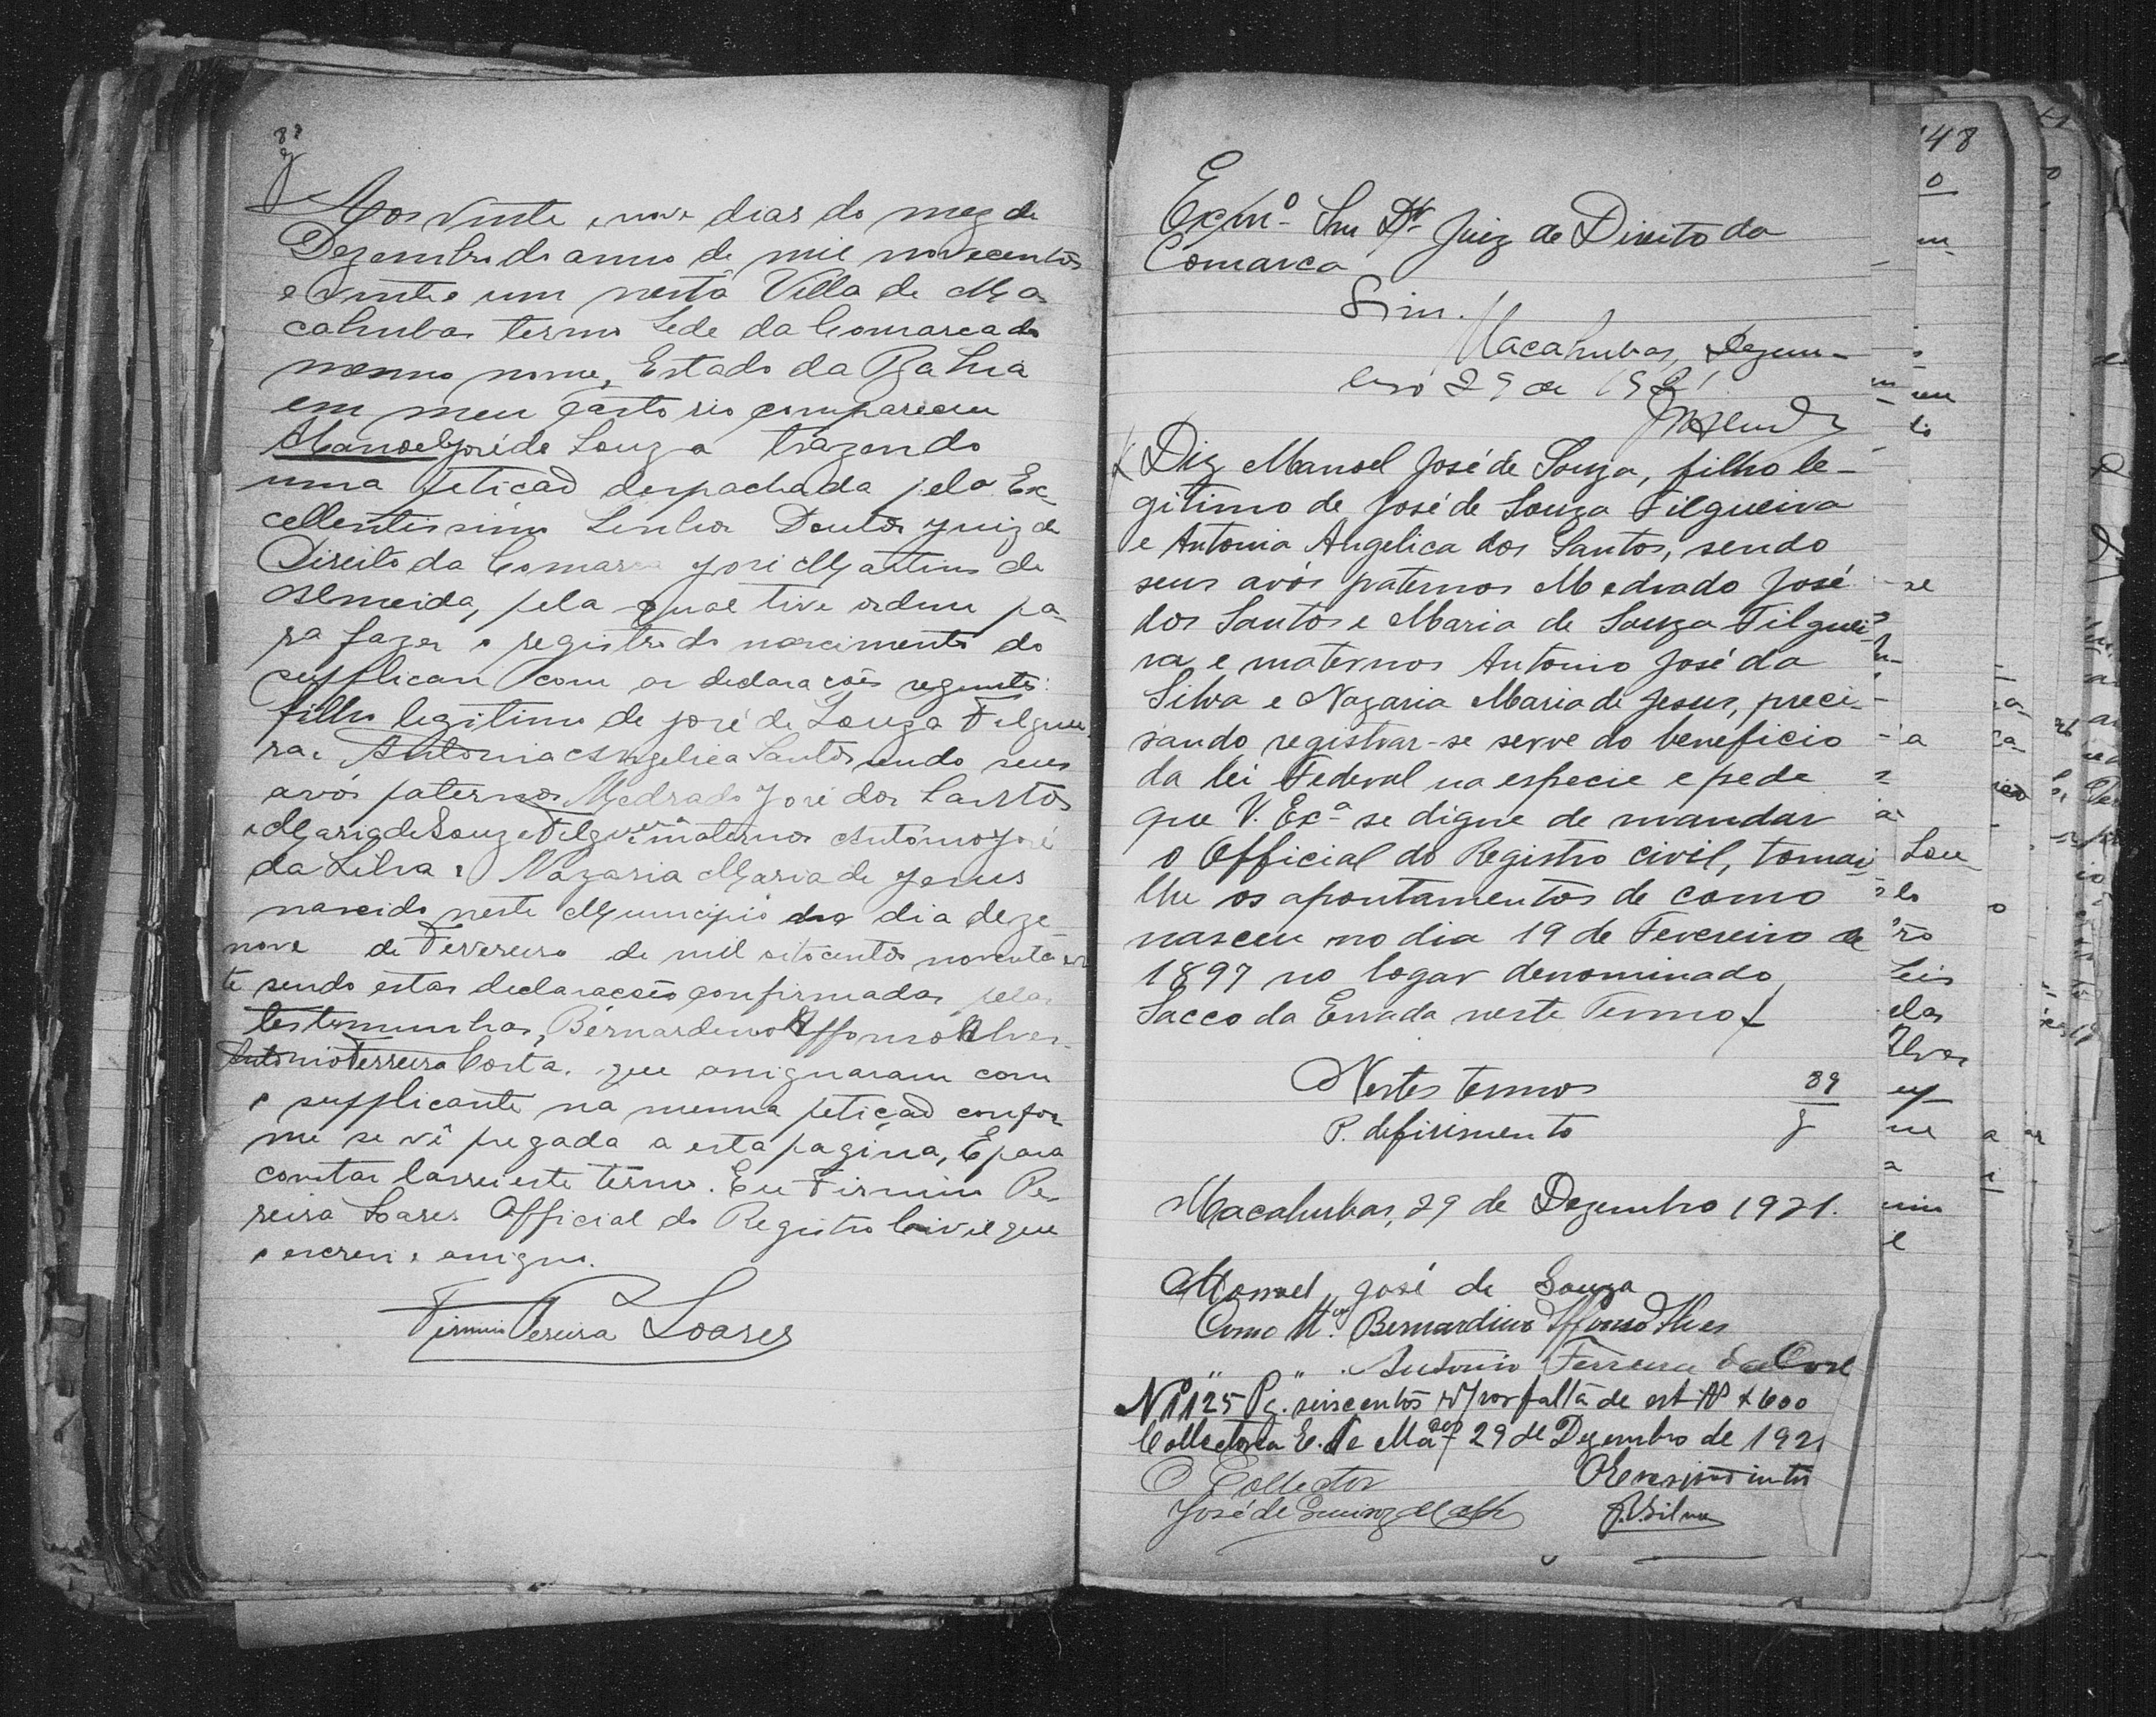 Aos vinte e nove dias do mez de
Dezembro do anno de mil novecentos
e vinte e um nesta Villa de Ma
cahubas termo Sede da Comarca do
mesmo nome, Estado da Bahia
em meu Cartorio compareceu
Manoel José de Souza trazendo
uma petição despachada pelo Ex
cellentissimo Senhor Doutor Juiz de
Direito da Comarca José Martins de
Almeida, pela qual tive ordem pa
ra fazer o registro do nascimento do
supplican com as declarações seguintes:
filho legitimo de José de Souza Filguei
ra e Antonia Angelica Santos sendo seus
avós paternos Medrado José dos Santos
e Maria de Souza Filgueira e maternos Antonio José
da Silva e Nazaria Maria de Jesus
nascido neste Municipio dia deze
nove de Fevereiro de mil oitocentos noventa e se
te sendo estas declarações confirmadas pelas
testemunhas, Bernardino Affonso Alves
Antonio Ferreira Costa. que assignaram com
o supplicante na mesma petição confor
me se vê pregada a esta pagina, E para
constar lavrei este termo. Eu Firmino Pe
reira Soares Official do Registro Civil que
o escrevi e assigno.
Firmino Pereira Soares
148
Exmo. Snr Dr. Juiz de Direito da
Comarca
Sim.
Macahubas, Dezem-
bro 29 de 1921
JMAlmeida
Diz Manoel José de Souza, filho le-
gitimo de José de Souza Filgueira
e Antonia Angelica dos Santos, sendo
seus avós paternos Medrado José
dos Santos e Maria de Souza Filguei-
ra e maternos Antonio José da
Silva e Nazaria Maria de Jesus, preci-
sando registrar-se serve do beneficio
da lei Federal na especie e pede
que V. Exª se digne de mandar
o Official do Registro civil, tomar
lhe os apontamentos de como
nasceu no dia 19 de Fevereiro de
1897 no logar denominado
Sacco da Errada neste Termo
Nestes termos
89
P. deferimento
Macahubas, 29 de Dezembro 1921.
Manoel José de Souza
Como tª Bernardino Affonso Alves
" " Antonio Ferreira da Cost
Nº 125 Pg. seiscentos rs por falta de est. 600
Collectoria E. de Macas 29 de Dezembro de 1921
O Collector
O Escrivão intº
José de
J.V.Silva